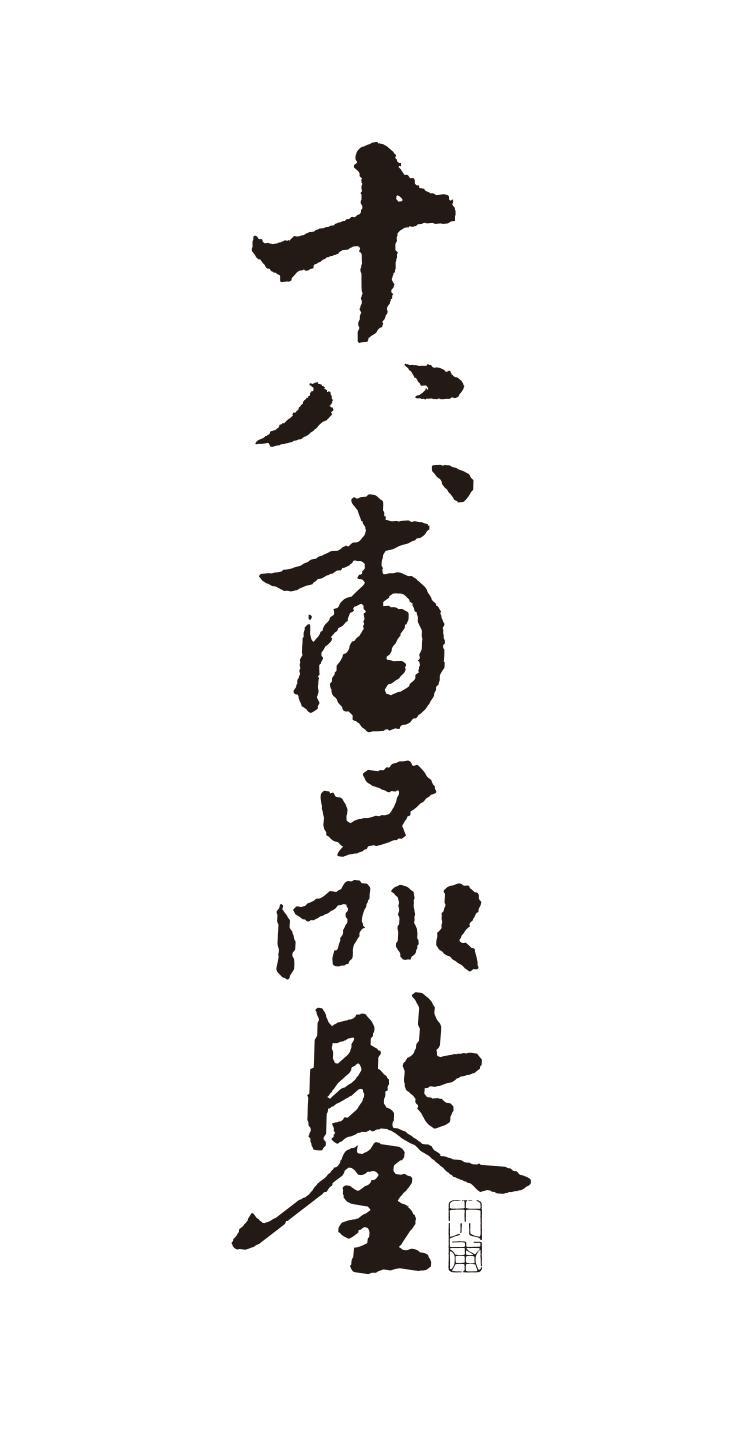 十八甫品鋻
十八甫